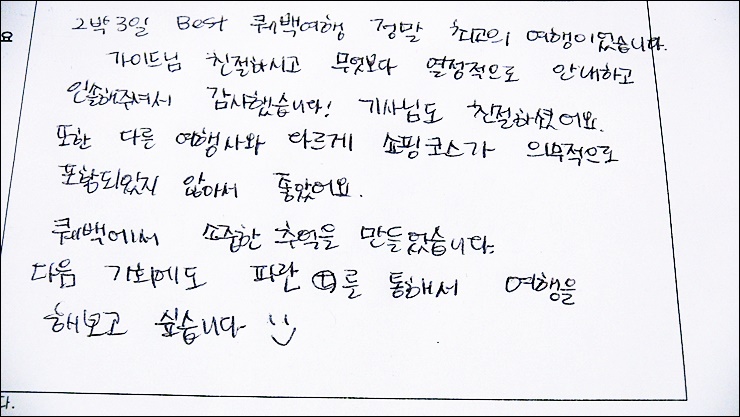 2박3일 Best 퀘백여행 정말 최고의 여행이었습니다.
요
가이드님 친절하시고 무엇보다 열정적으로 안내하고
인솔해주셔서 감사했습니다! 기사님도 친절하셨어요.
또한 다른 여행사와 다르게 쇼핑코스가 의무적으로
포함되있지 않아서 좋았어요.
퀘백에서 소중한 추억을 만들었습니다.
다음 기회에도 파란 를 통해서 여행을
해보고 싶습니다
다.